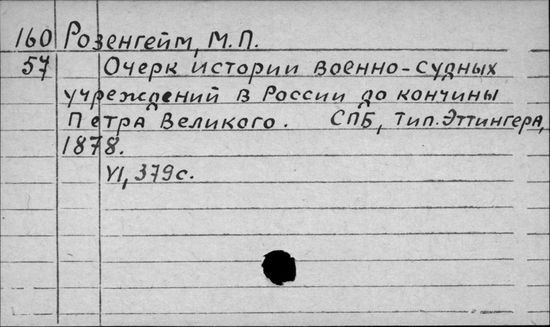 160 Розенгейм, М.П.
57 Очерк истории военно-судных
учреждений в России до кончины
Петра Великого. СПБ, Тип.Эттингера,
1878.
VI, 379 с.